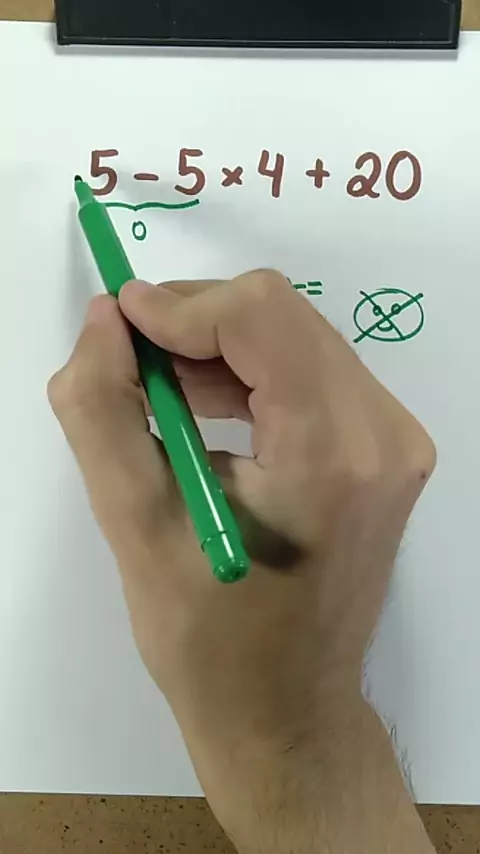 5 - 5 × 4 + 20
0
=